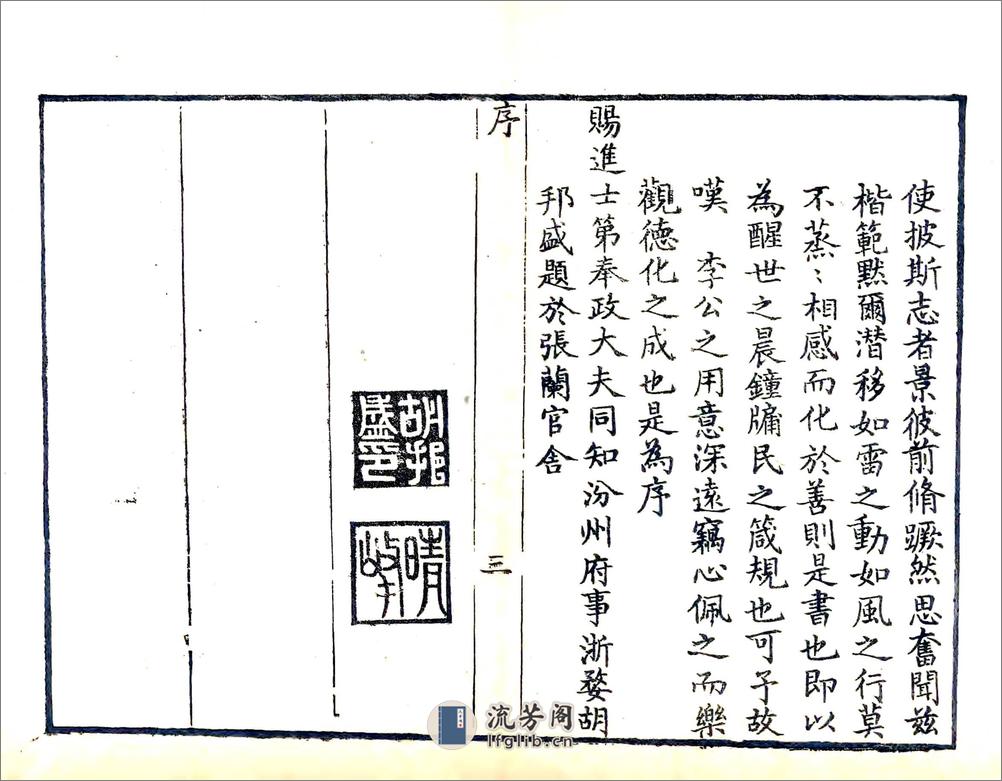 使披斯志者景彼前脩蹶然思奮聞玆
楷範黙爾潛移如雷之動如風之行莫
不蒸〻相感而化於善則是書也即以
為醒世之晨鐘牖民之箴規也可予故
嘆　李公之用意深遠竊心佩之而樂
觀德化之成也是為序
賜進士第奉政大夫同知汾州府事浙婺胡
邦盛題於張蘭官舍
序
三
胡邦
盛印
晴
峰
流芳阁
lfglib.cn